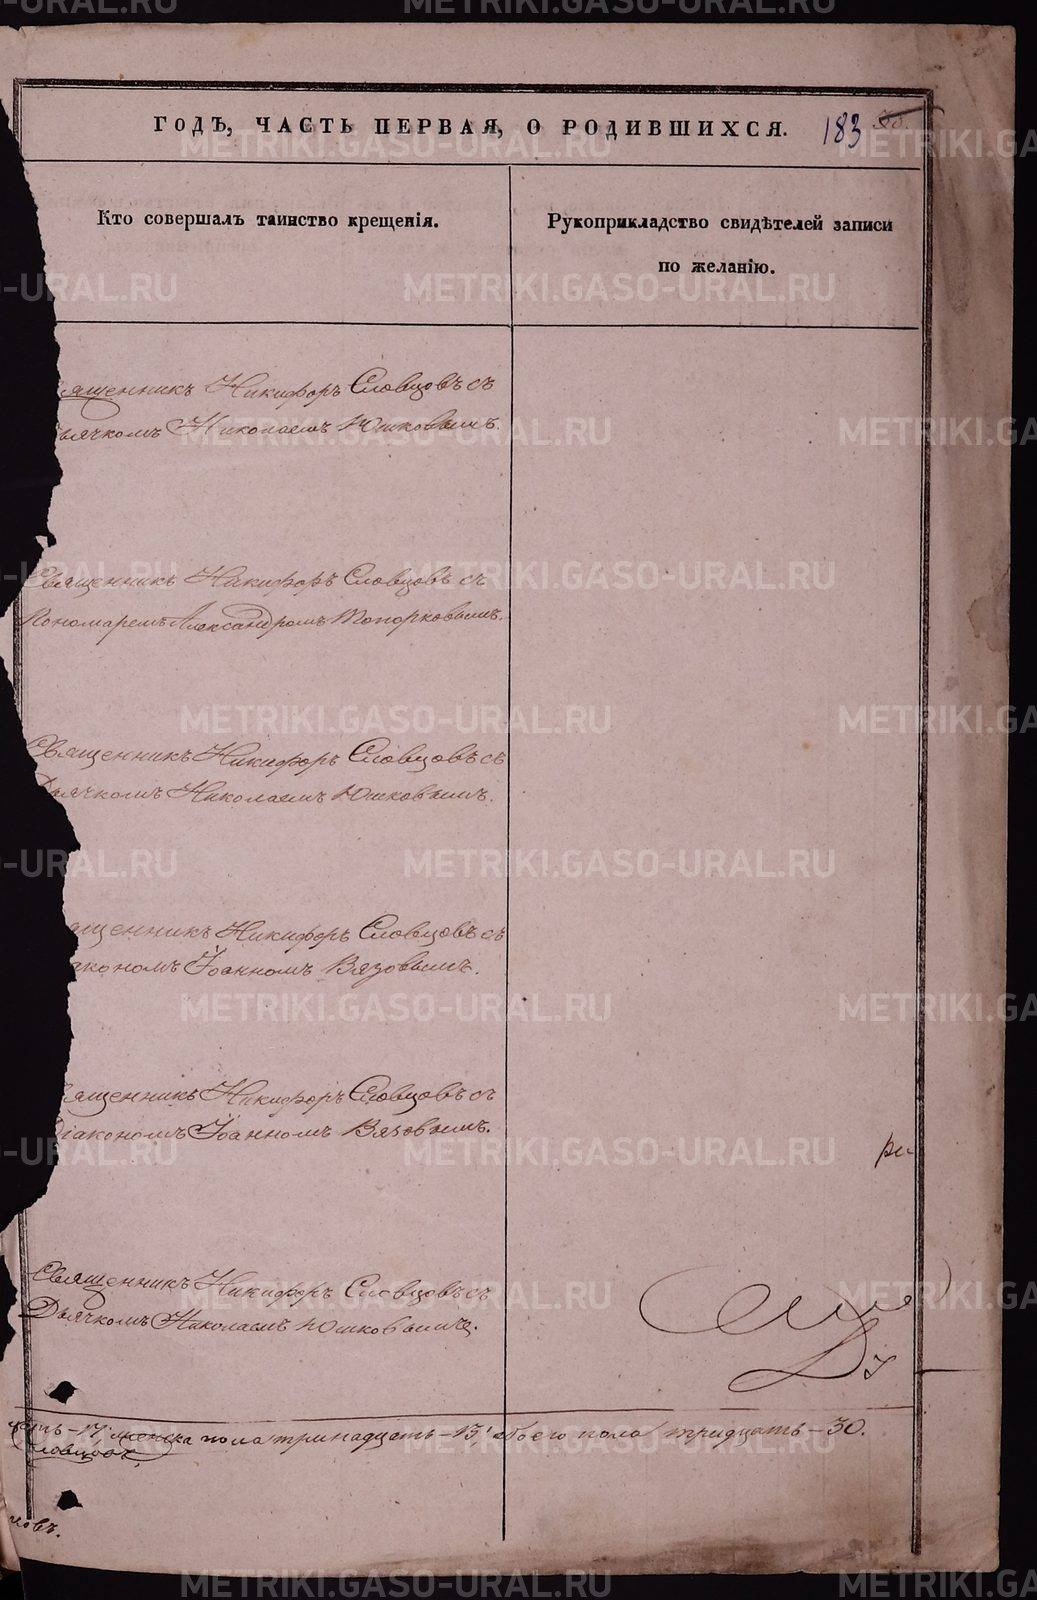 ГОДЪ, ЧАСТЬ ПЕРВАЯ, О РОДИВШИХСЯ. 183
Кто совершалъ таинство крещенія.
Рукоприкладство свидѣтелей записи
по желанію.
ященникъ Никифоръ Словцовъ съ
ьячкомъ Николаемъ Юшковымъ.
Священникъ Никифоръ Словцовъ съ
Пономаремъ Александромъ Топорковымъ.
Священникъ Никифоръ Словцовъ съ
Дьячкомъ Николаемъ Юшковымъ.
ященникъ Никифоръ Словцовъ съ
іакономъ Іоанномъ Вязовымъ.
ященникъ Никифоръ Словцовъ съ
Діакономъ Іоанномъ Вязовымъ.
Священникъ Никифоръ Словцовъ съ
Дьячкомъ Николаемъ Юшковымъ.
ть - 17, женска пола тринадцать - 13, обоего пола тридцать - 30.
Словцовъ,
ковъ.
METRIKI.GASO-URAL.RU